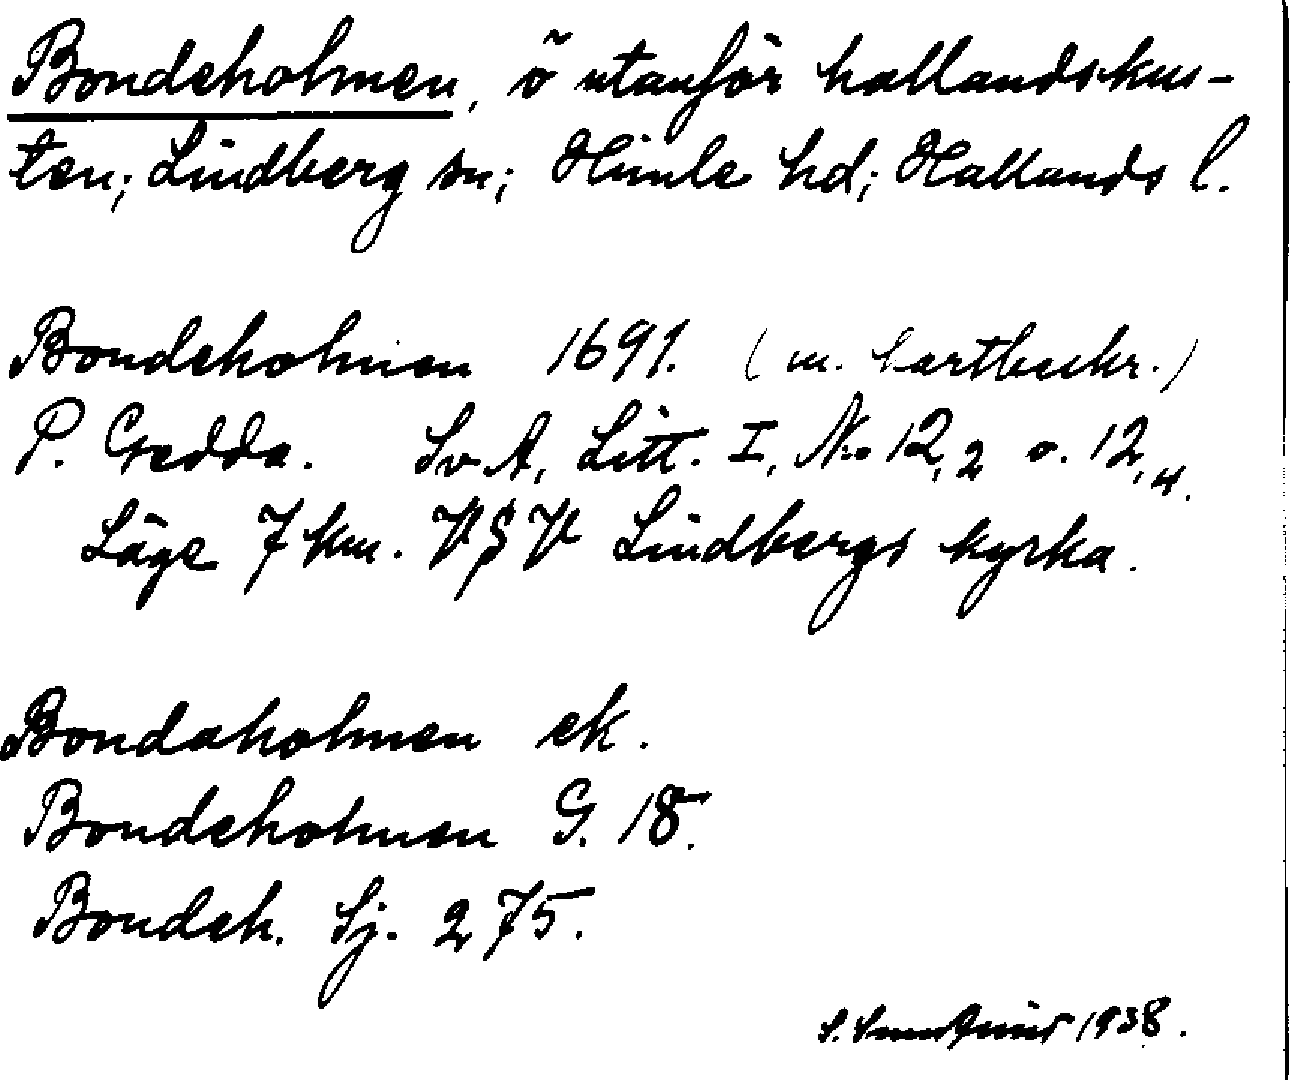 Bondeholmen, ö utanför hallandskus-
ten; Lindberg sn; Himle hd; Hallands l.
Bondeholmen 1691. (m. kartbeskr.)
P. Gedda. Sv. A, Litt. I, No 12,2 o. 12,4.
Läge 7 km. VSV Lindbergs kyrka.
Bondaholmen ek.
Bondeholmen G. 18.
Bondeh. Sj. 275.
S. 1938.